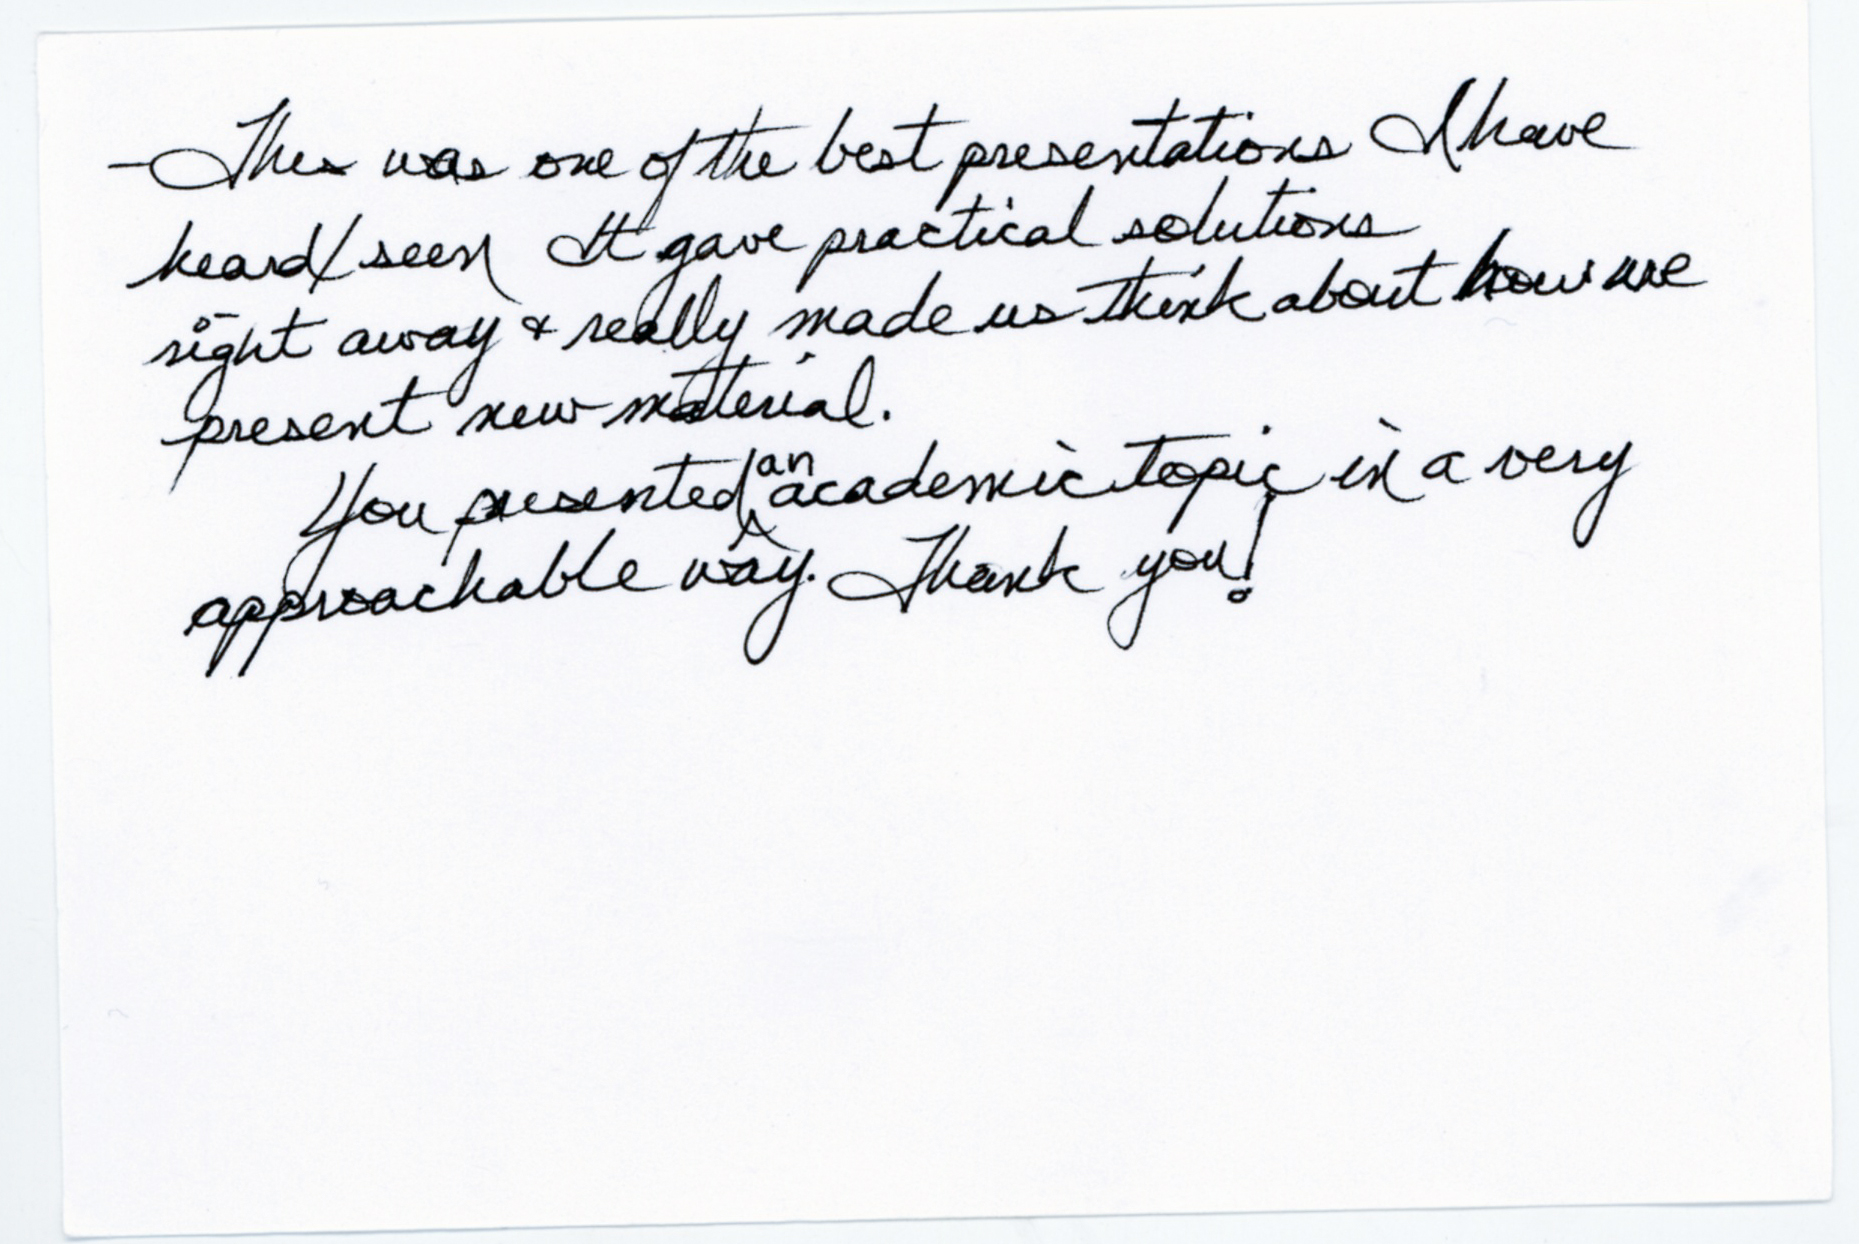 - This was one of the best presentations I have
heard/seen It gave practical solutions
right away & really made us think about how we
present new material.
You presented an academic topic in a very
approachable way. Thank you!